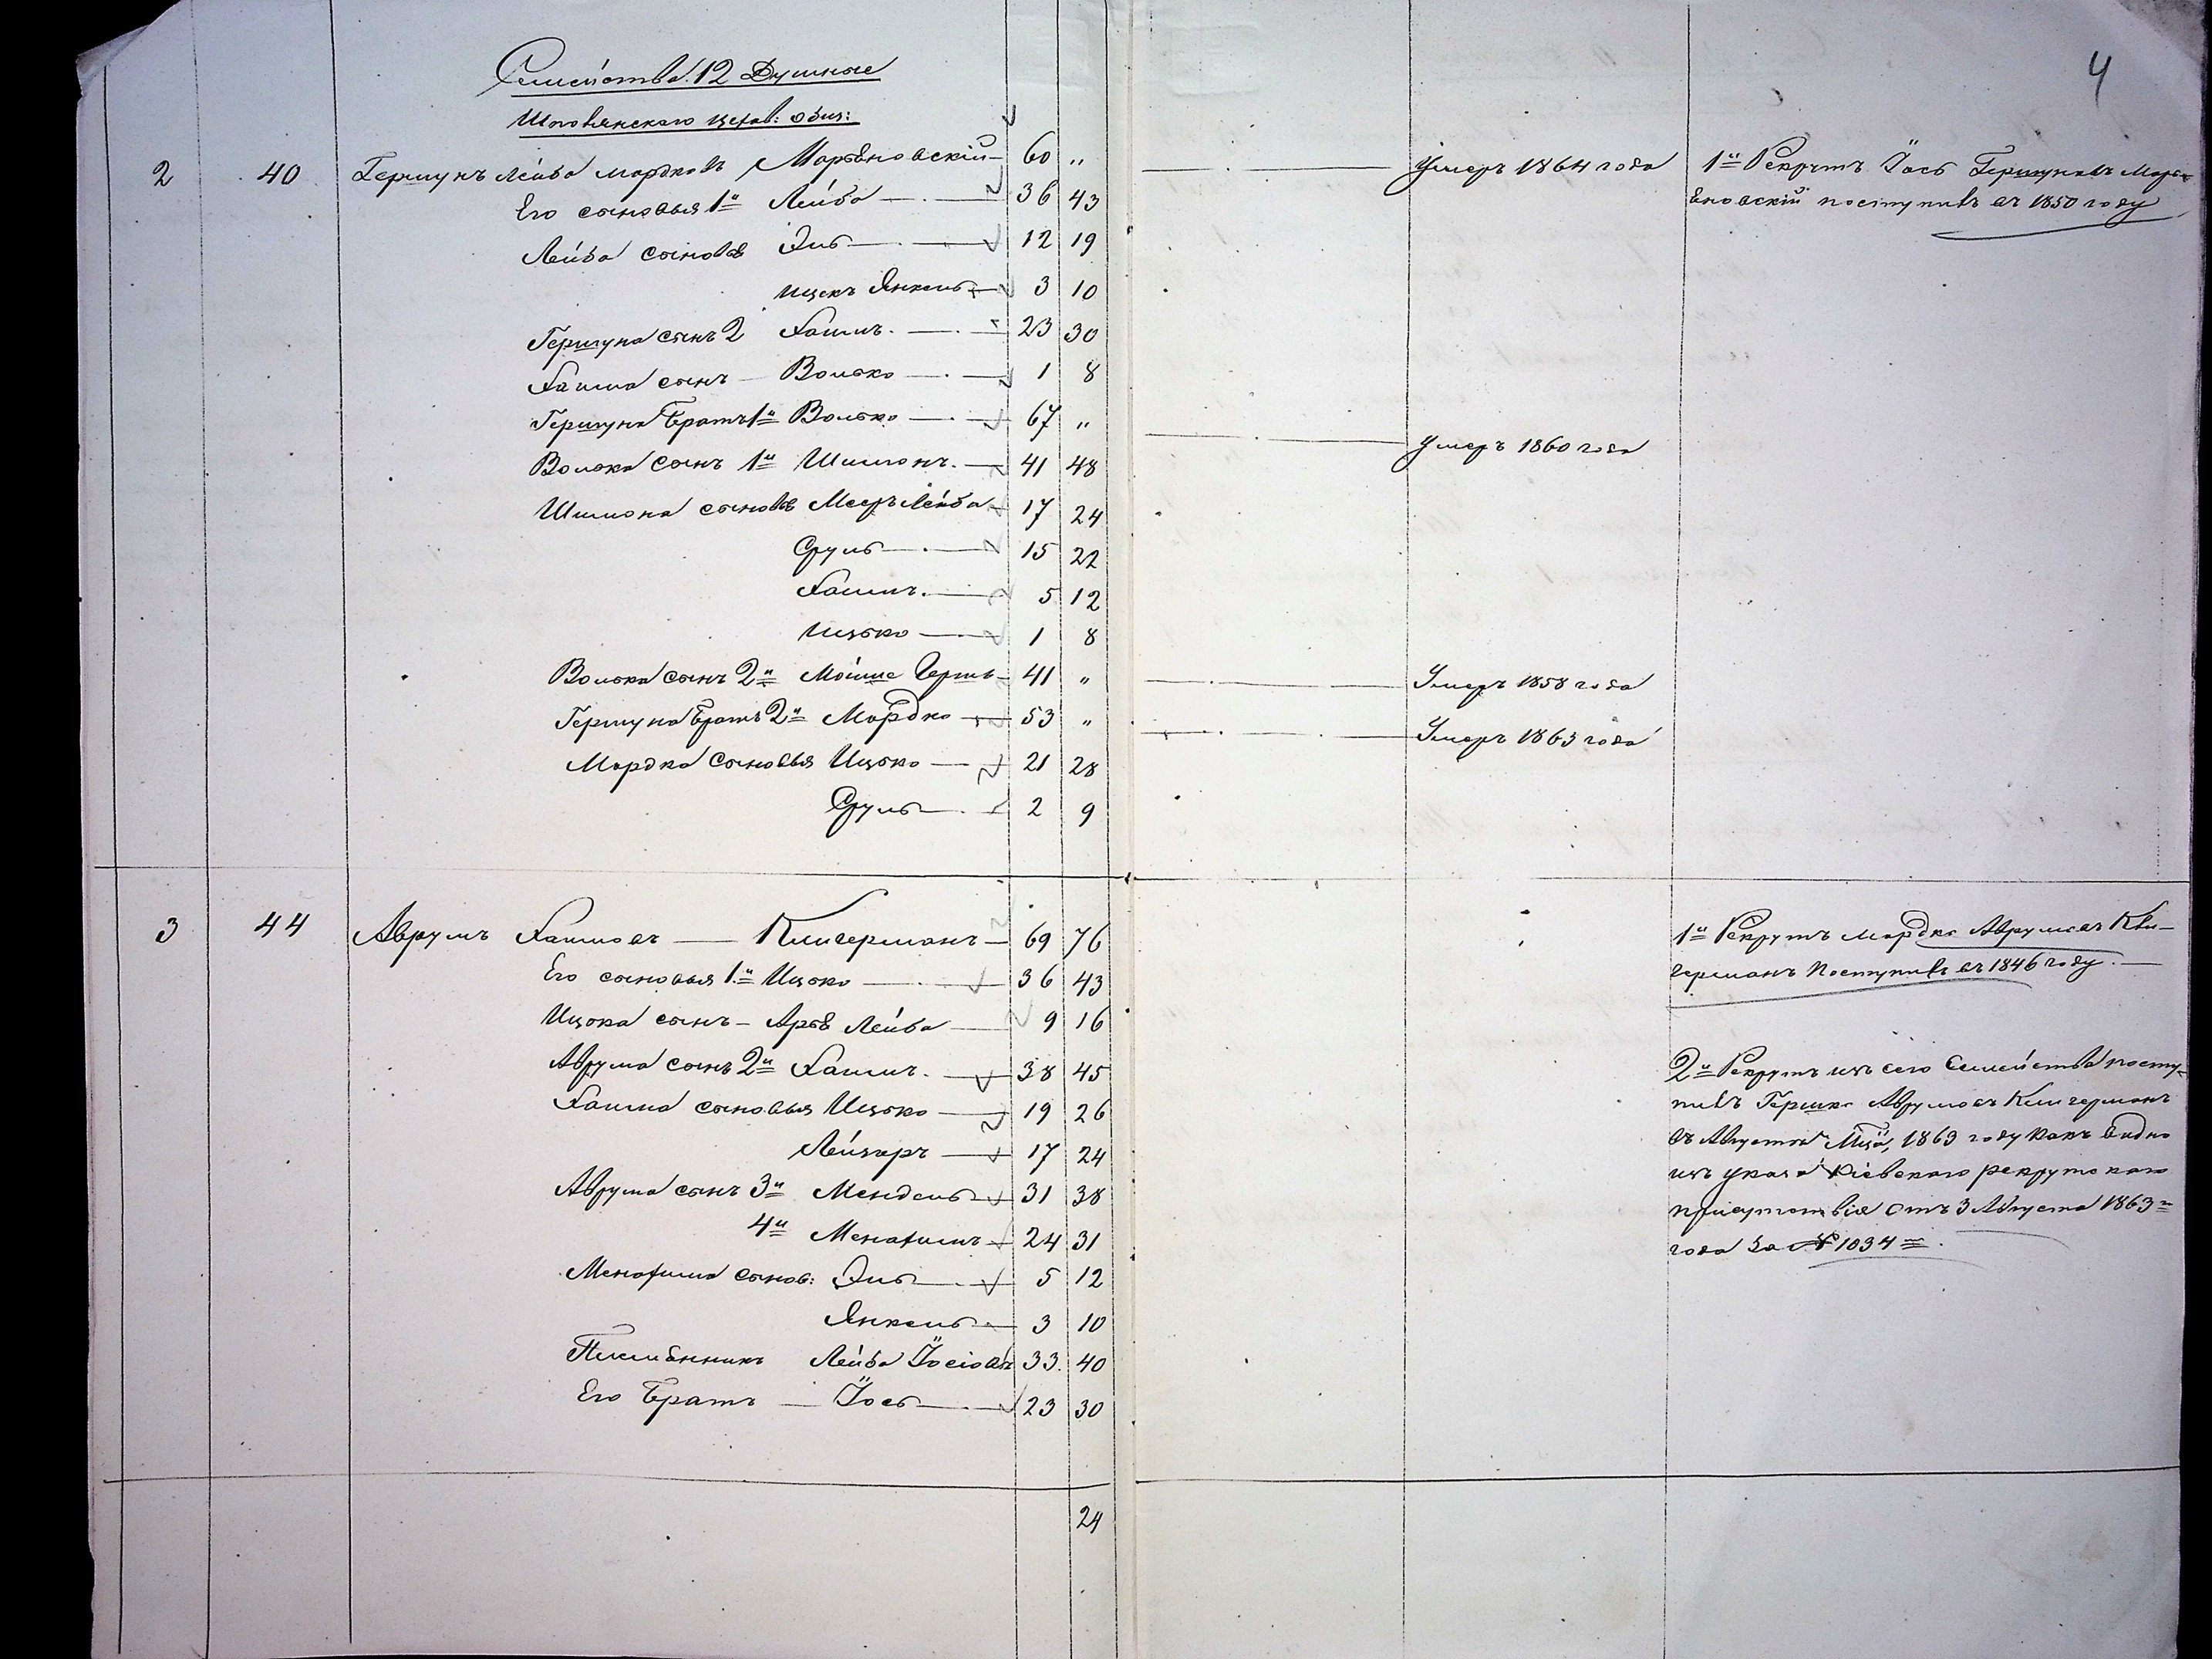 4
Семейства 12 Душные
Шполянскаго еврей: общ:
2 40 Гершунъ Лейба Мордковъ Марьяновскій 60 " Умеръ 1864 года 1й Рекрутъ Іось Гершуновъ Марь-
Его сыновья 1й Лейба 36 43 яновскій поступилъ въ 1850 году
Лейба сыновья Эль 12 19
Ицекъ Янкель 3 10
Гершуна сынъ 2 Хаимъ 23 30
Хаима сынъ Волько 1 8
Гершуна братъ 1й Волько 67 " Умеръ 1860 года
Волька сынъ 1й Шимонъ 41 48
Шимона сыновья Мееръ Лейба 17 24
Сруль 15 22
Хаимъ 5 12
Ицько 1 8
Волька сынъ 2й Мойше Гершъ 41 " Умеръ 1858 года
Гершуна братъ 2й Мордко 53 " Умеръ 1863 года
Мордка сыновья Ицько 21 28
Сруль 2 9
3 44 Аврумъ Хаимовъ Клигерманъ 69 76 1й Рекрутъ Мордко Аврумовъ Кли-
Его сыновья 1й Ицько 36 43 германъ поступилъ въ 1846 году.
Ицька сынъ Арье Лейба 9 16
Аврума сынъ 2й Хаимъ 38 45 2й Рекрутъ изъ сего семейства посту-
Хаима сыновья Ицько 19 26 пилъ Гершко Аврумовъ Клигерманъ
Лейзеръ 17 24 въ Августѣ Мцѣ, 1863 году какъ видно
Аврума сынъ 3й Мендель 31 38 изъ указа Кіевскаго рекрутскаго
4й Менахимъ 24 31 присутствія отъ 3 Августа 1863
Менахима сынов: Эль 5 12 года за № 1034
Янкель 3 10
Племянникъ Лейба Іосіовъ 33 40
Его братъ Іось 23 30
24